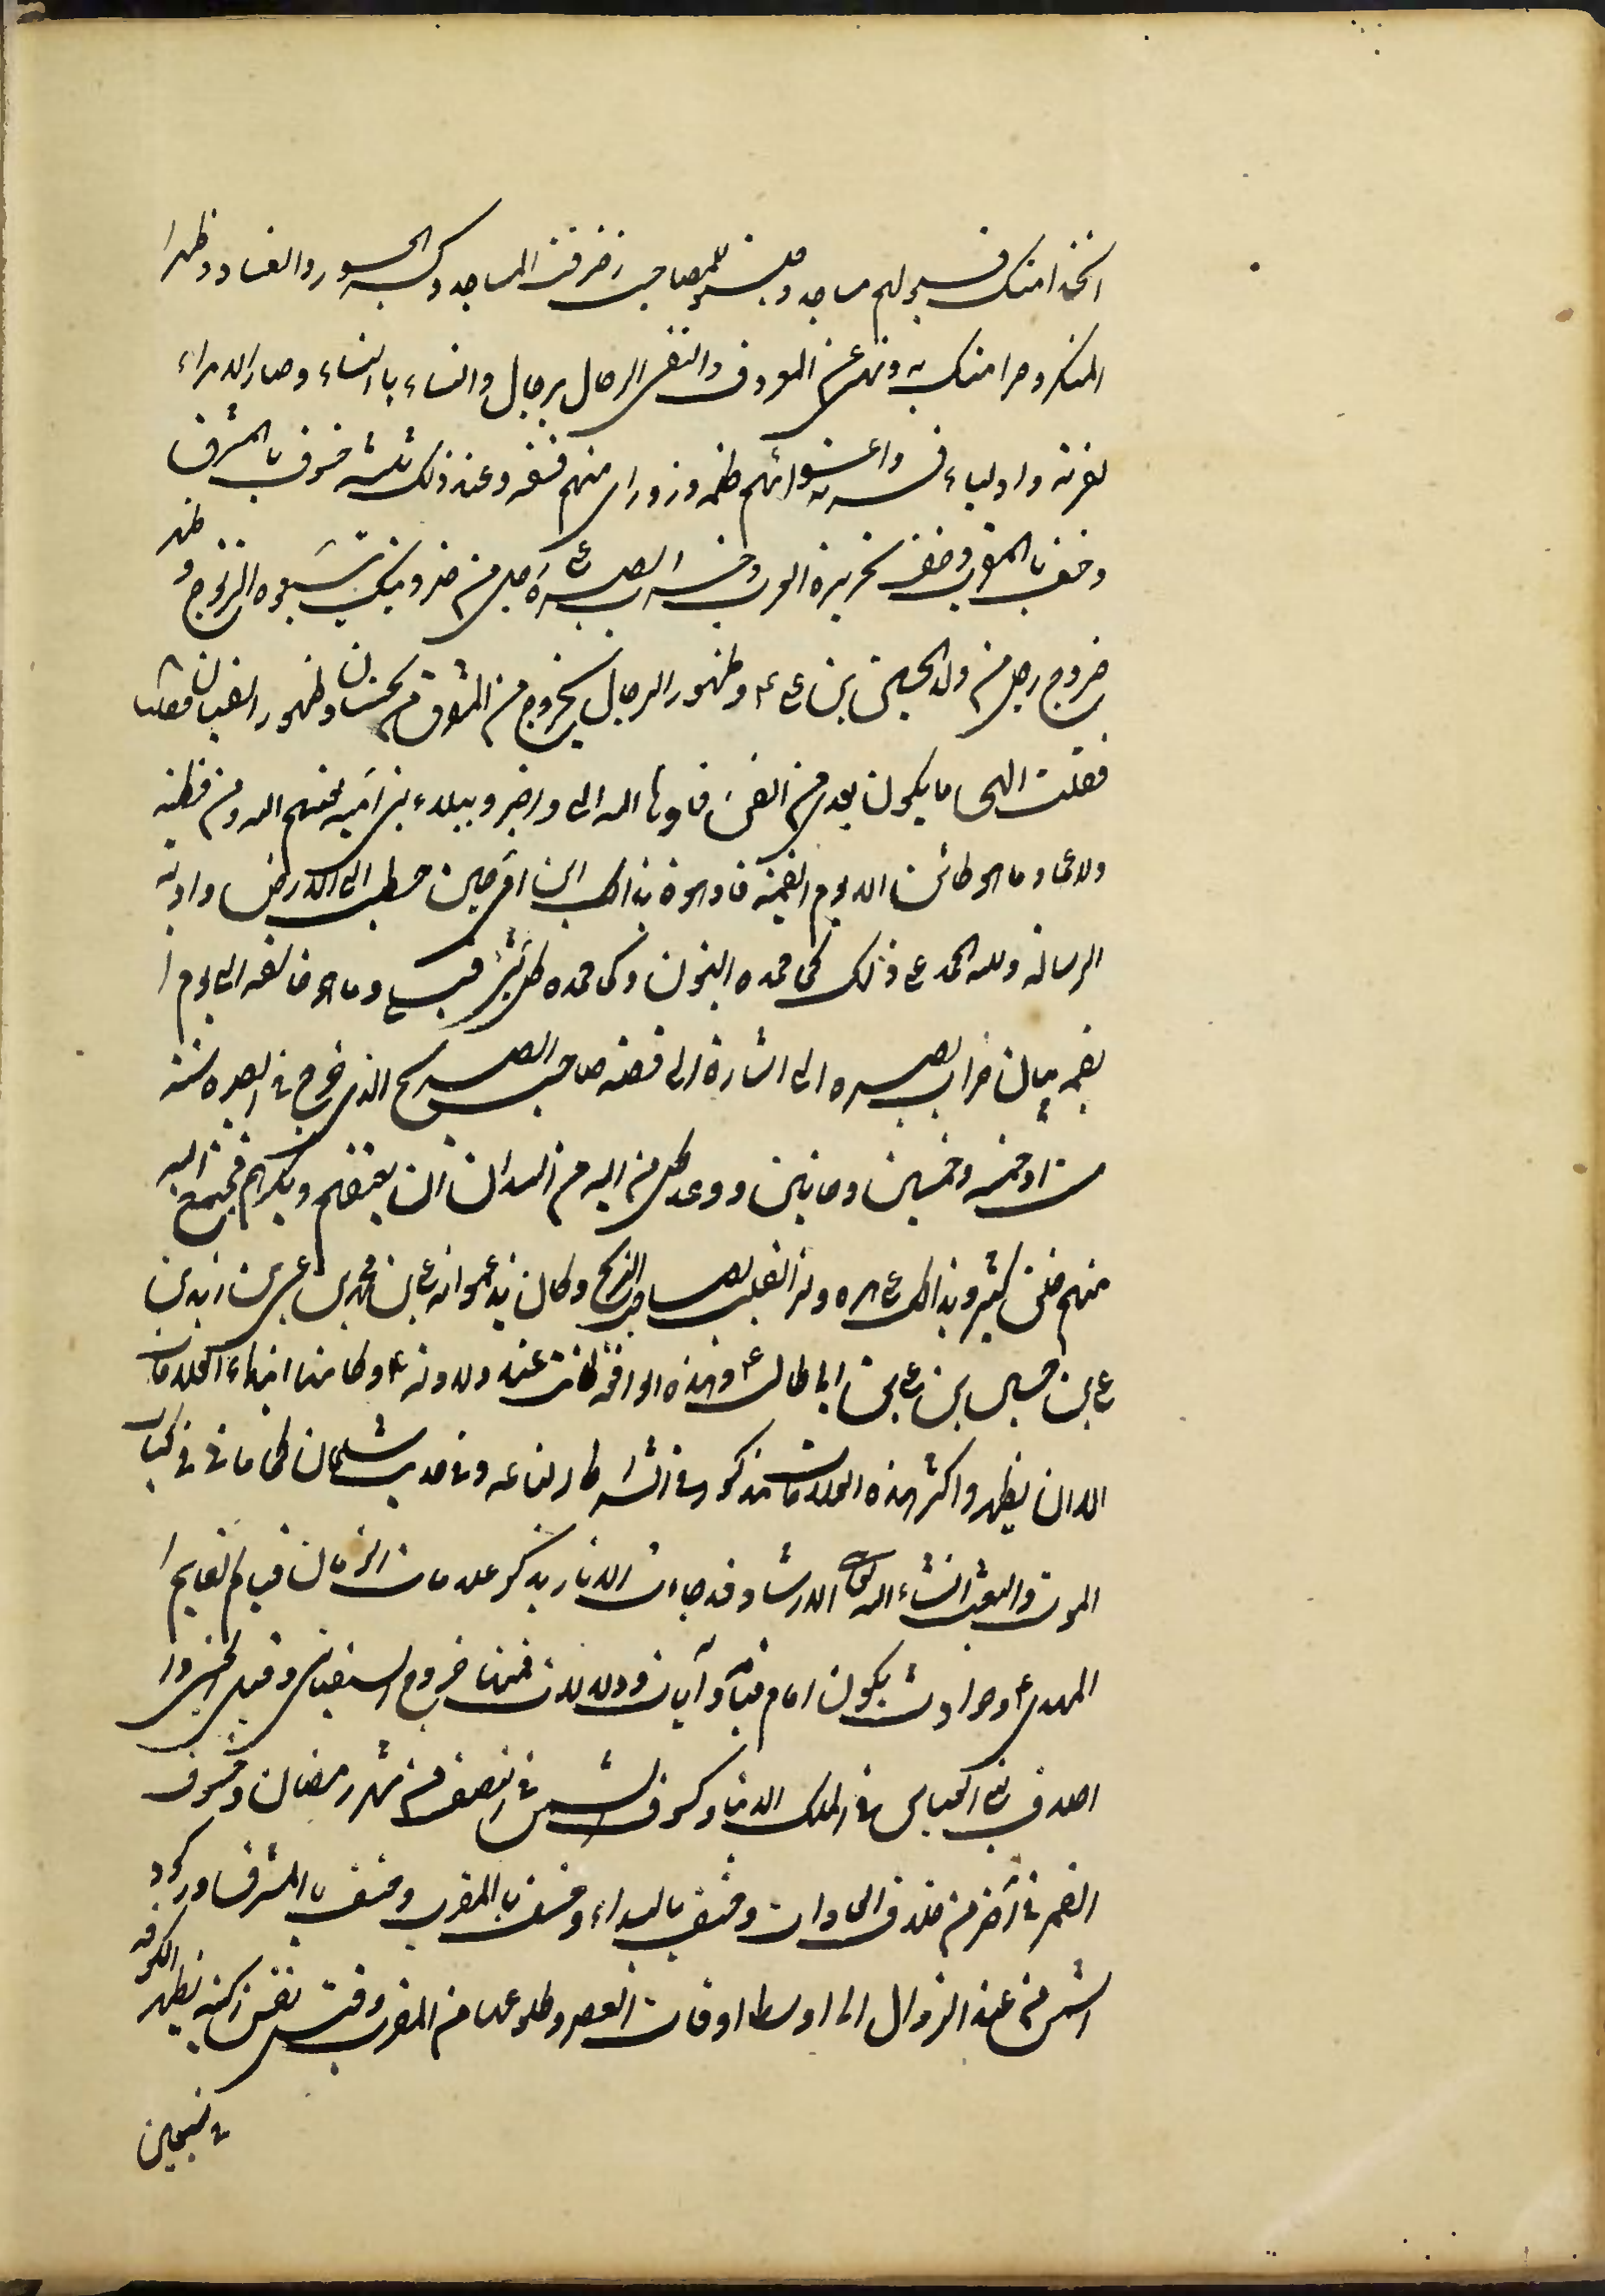 اتخذ امتك قبورهم مساجد وحليت المصاحف وزخرفت المساجد وكثر الجور والفساد وظهر ا
المنكر وامر امتك به ونهى عن المعروف واكتفى الرجال برجال والنساء بالنساء وصار الامراء
كفرة واولياءهم فجرة واعوانهم ظلمة وذو راى منهم فسقة وعند ذلك ثلثة خسوف بالمشرق
وخسف بالمغرب وخسف بجزيرة العرب وخراب البصرة على رجل من ذريتك يتبعوه الزنوج و ظهر
خروج رجل من ولد الحسين بن علی ع وظهور الدجال يخرج من المشرق من سجستان وظهور السفيانى فقلت
فقلت الهى ما يكون بعدى من الفتن فاوحى الله الى واخبرنى ببلاء بنى امية لعنهم الله ومن فتنة
ولد عمى وما هو كائن الى يوم القيمة فاوصيت بذلك ابن عمى حين هبطت الى الارض واديت
الرسالة ولله الحمد على ذلك كما حمده النبيون وكما حمده كل شىء قبلى وما هو خالقه الى يوم ا
لقيمة بيان خراب البصرة الى اشارة الى قصة صاحب الزنج الذى خرج فى البصرة سنة
ست او خمس وخمسين ومائتين ووعد كل من اليه من السودان ان يعتقهم ويكرمهم فاجتمع اليه
منهم خلق كثير وبذلك علا امره ولذا لقب بصاحب الزنج وكان يزعم انه على بن محمد بن عيسى بن زيد بن
على بن حسين بن على بن ابى طالب ع وهذه الواقعة كانت عند ولادته ع وكان منها ابتداء العلامات
الى ان يظهر واكثر هذه العلامات مذكور فى اشراط الساعة وفى حديث سلمان كما فى كتاب
الموت والبعث انشاء الله تعالى الارشاد قد جاءت الاثار بذكر علامات لزمان قيام القايم ا
المهدى ع وحوادث يكون امام قيامه وآيات ودلالات فمنها خروج السفيانى وقتل الحسنى وا
اختلاف بنى العباس فى الملك الدنياوى وكسوف الشمس فى النصف من شهر رمضان وخسوف
القمر فى آخره من خلاف العادات وخسف بالبيداء وخسف بالمغرب وخسف بالمشرق وركود
الشمس من عند الزوال الى اوسط اوقات العصر وطلوعها من المغرب وقتل نفس زكية يظهر الكوفه
فى سبعين